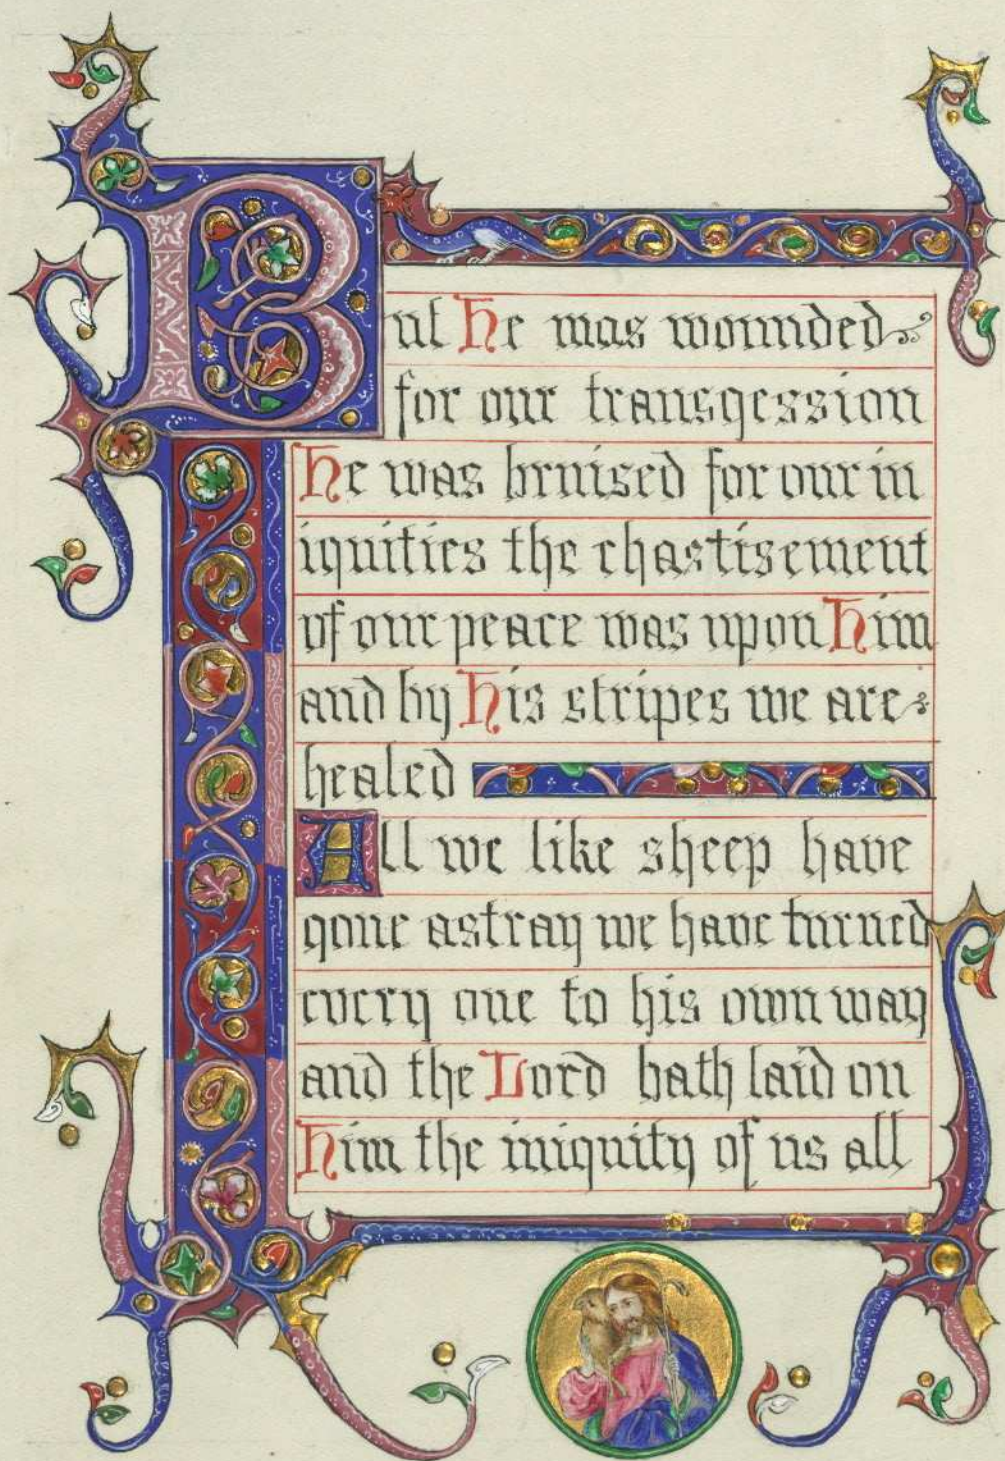 But He was wounded
for our transgession
He was bruised for our in
iquities the chastisement
of our peace was upon Him
and by His stripes we are
healed
All we like sheep have
gone astray we have turned
every one to his own way
and the Lord hath laid on
Him the iniquity of us all